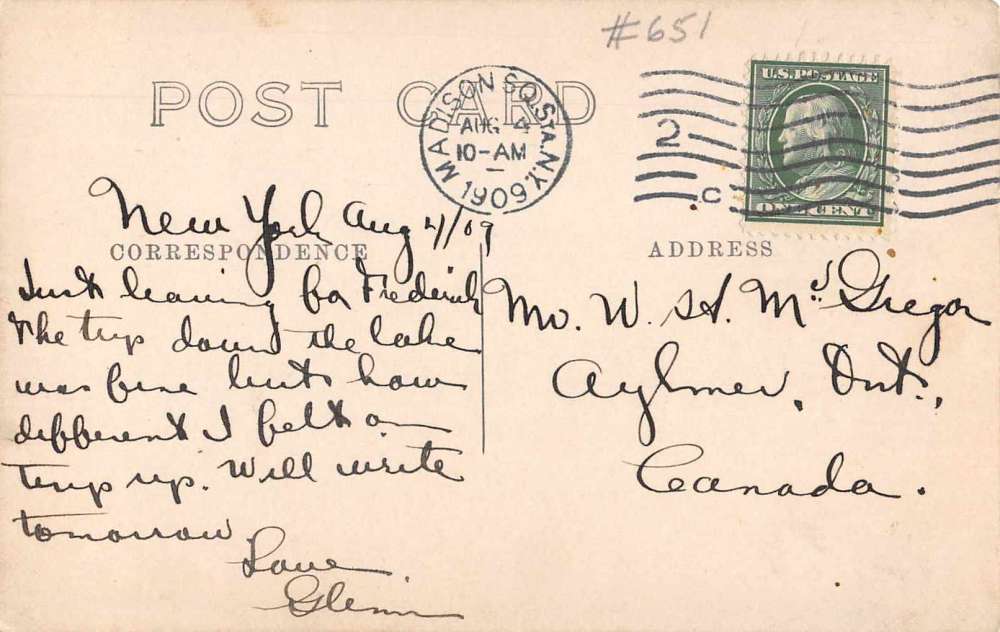 #651
POST CARD
MADISON SQ. STA. N.Y.
AUG 4
10-AM
1909
2
C
U.S. POSTAGE
ONE CENT
New York Aug 4/09
CORRESPONDENCE
Just leaving for Frederick
The trip down the lake
was fine but how
different I felt on
trip up. Will write
tomorrow.
Love
Glenn
ADDRESS
Mr. W. H. McGregor
Aylmer, Ont.,
Canada.